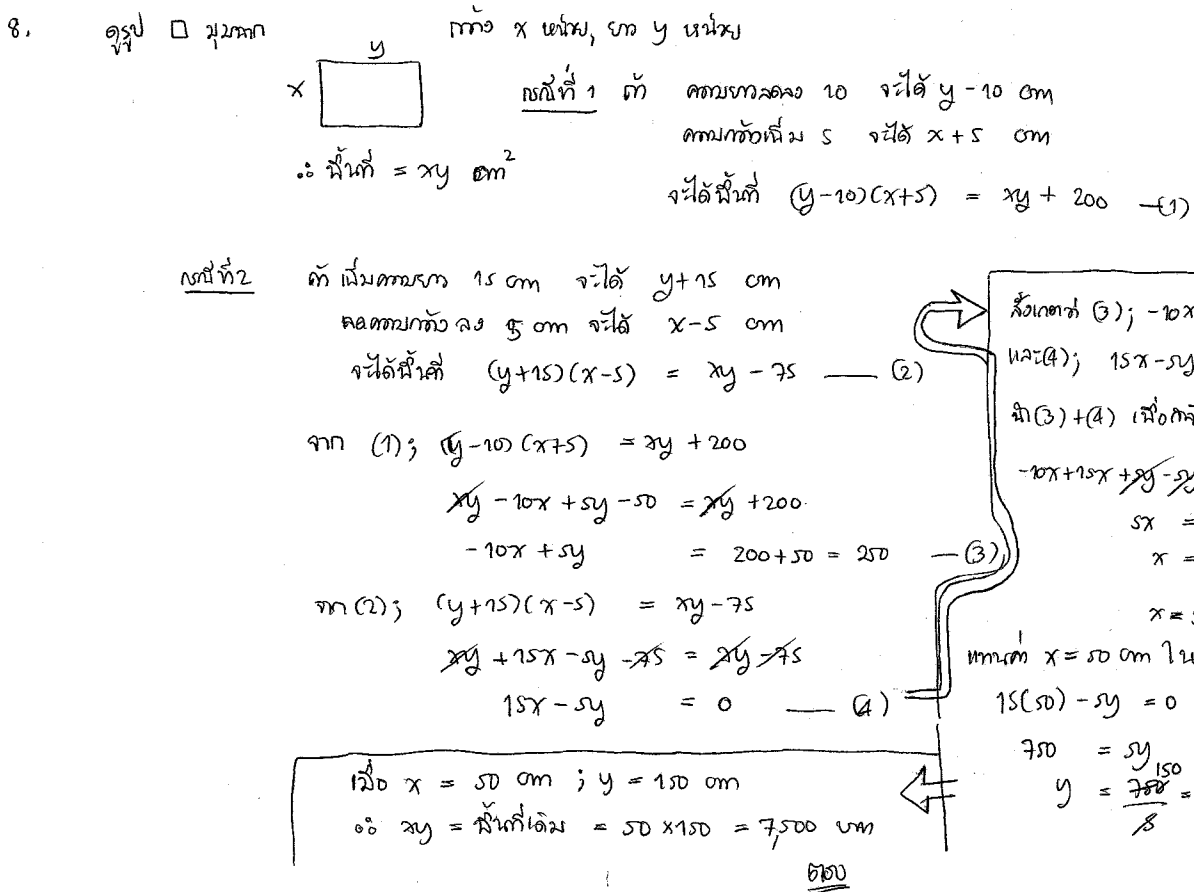 8. ดูรูป □ มุมฉาก กว้าง x หน่วย, ยาว y หน่วย
y
x
∴ พื้นที่ = xy cm²
กรณีที่ 1 ถ้า ความยาวลดลง 10 จะได้ y-10 cm
ความกว้างเพิ่ม 5 จะได้ x+5 cm
จะได้พื้นที่ (y-10)(x+5) = xy + 200 —(1)
กรณีที่2 ถ้าเพิ่มความยาว 15 cm จะได้ y+15 cm
ลดความกว้าง ลง 5 cm จะได้ x-5 cm
จะได้พื้นที่ (y+15)(x-5) = xy - 75 —— (2)
จาก (1); (y-10)(x+5) = xy + 200
xy - 10x + 5y - 50 = xy + 200
-10x + 5y = 200+50 = 250 —(3)
จาก (2); (y+15)(x-5) = xy-75
xy + 15x - 5y - 75 = xy - 75
15x - 5y = 0 —— (4)
สังเกตว่า (3); -10x
และ(4); 15x-5y
นำ(3)+(4) เพื่อ
-10x+15x+5y-5y
5x =
x =
x =
แทนค่า x = 50 cm ใน
15(50) - 5y = 0
750 = 5y
y = 750/5 =
150
เมื่อ x = 50 cm ; y = 150 cm
∴ xy = พื้นที่เดิม = 50 x 150 = 7,500
ตอบ